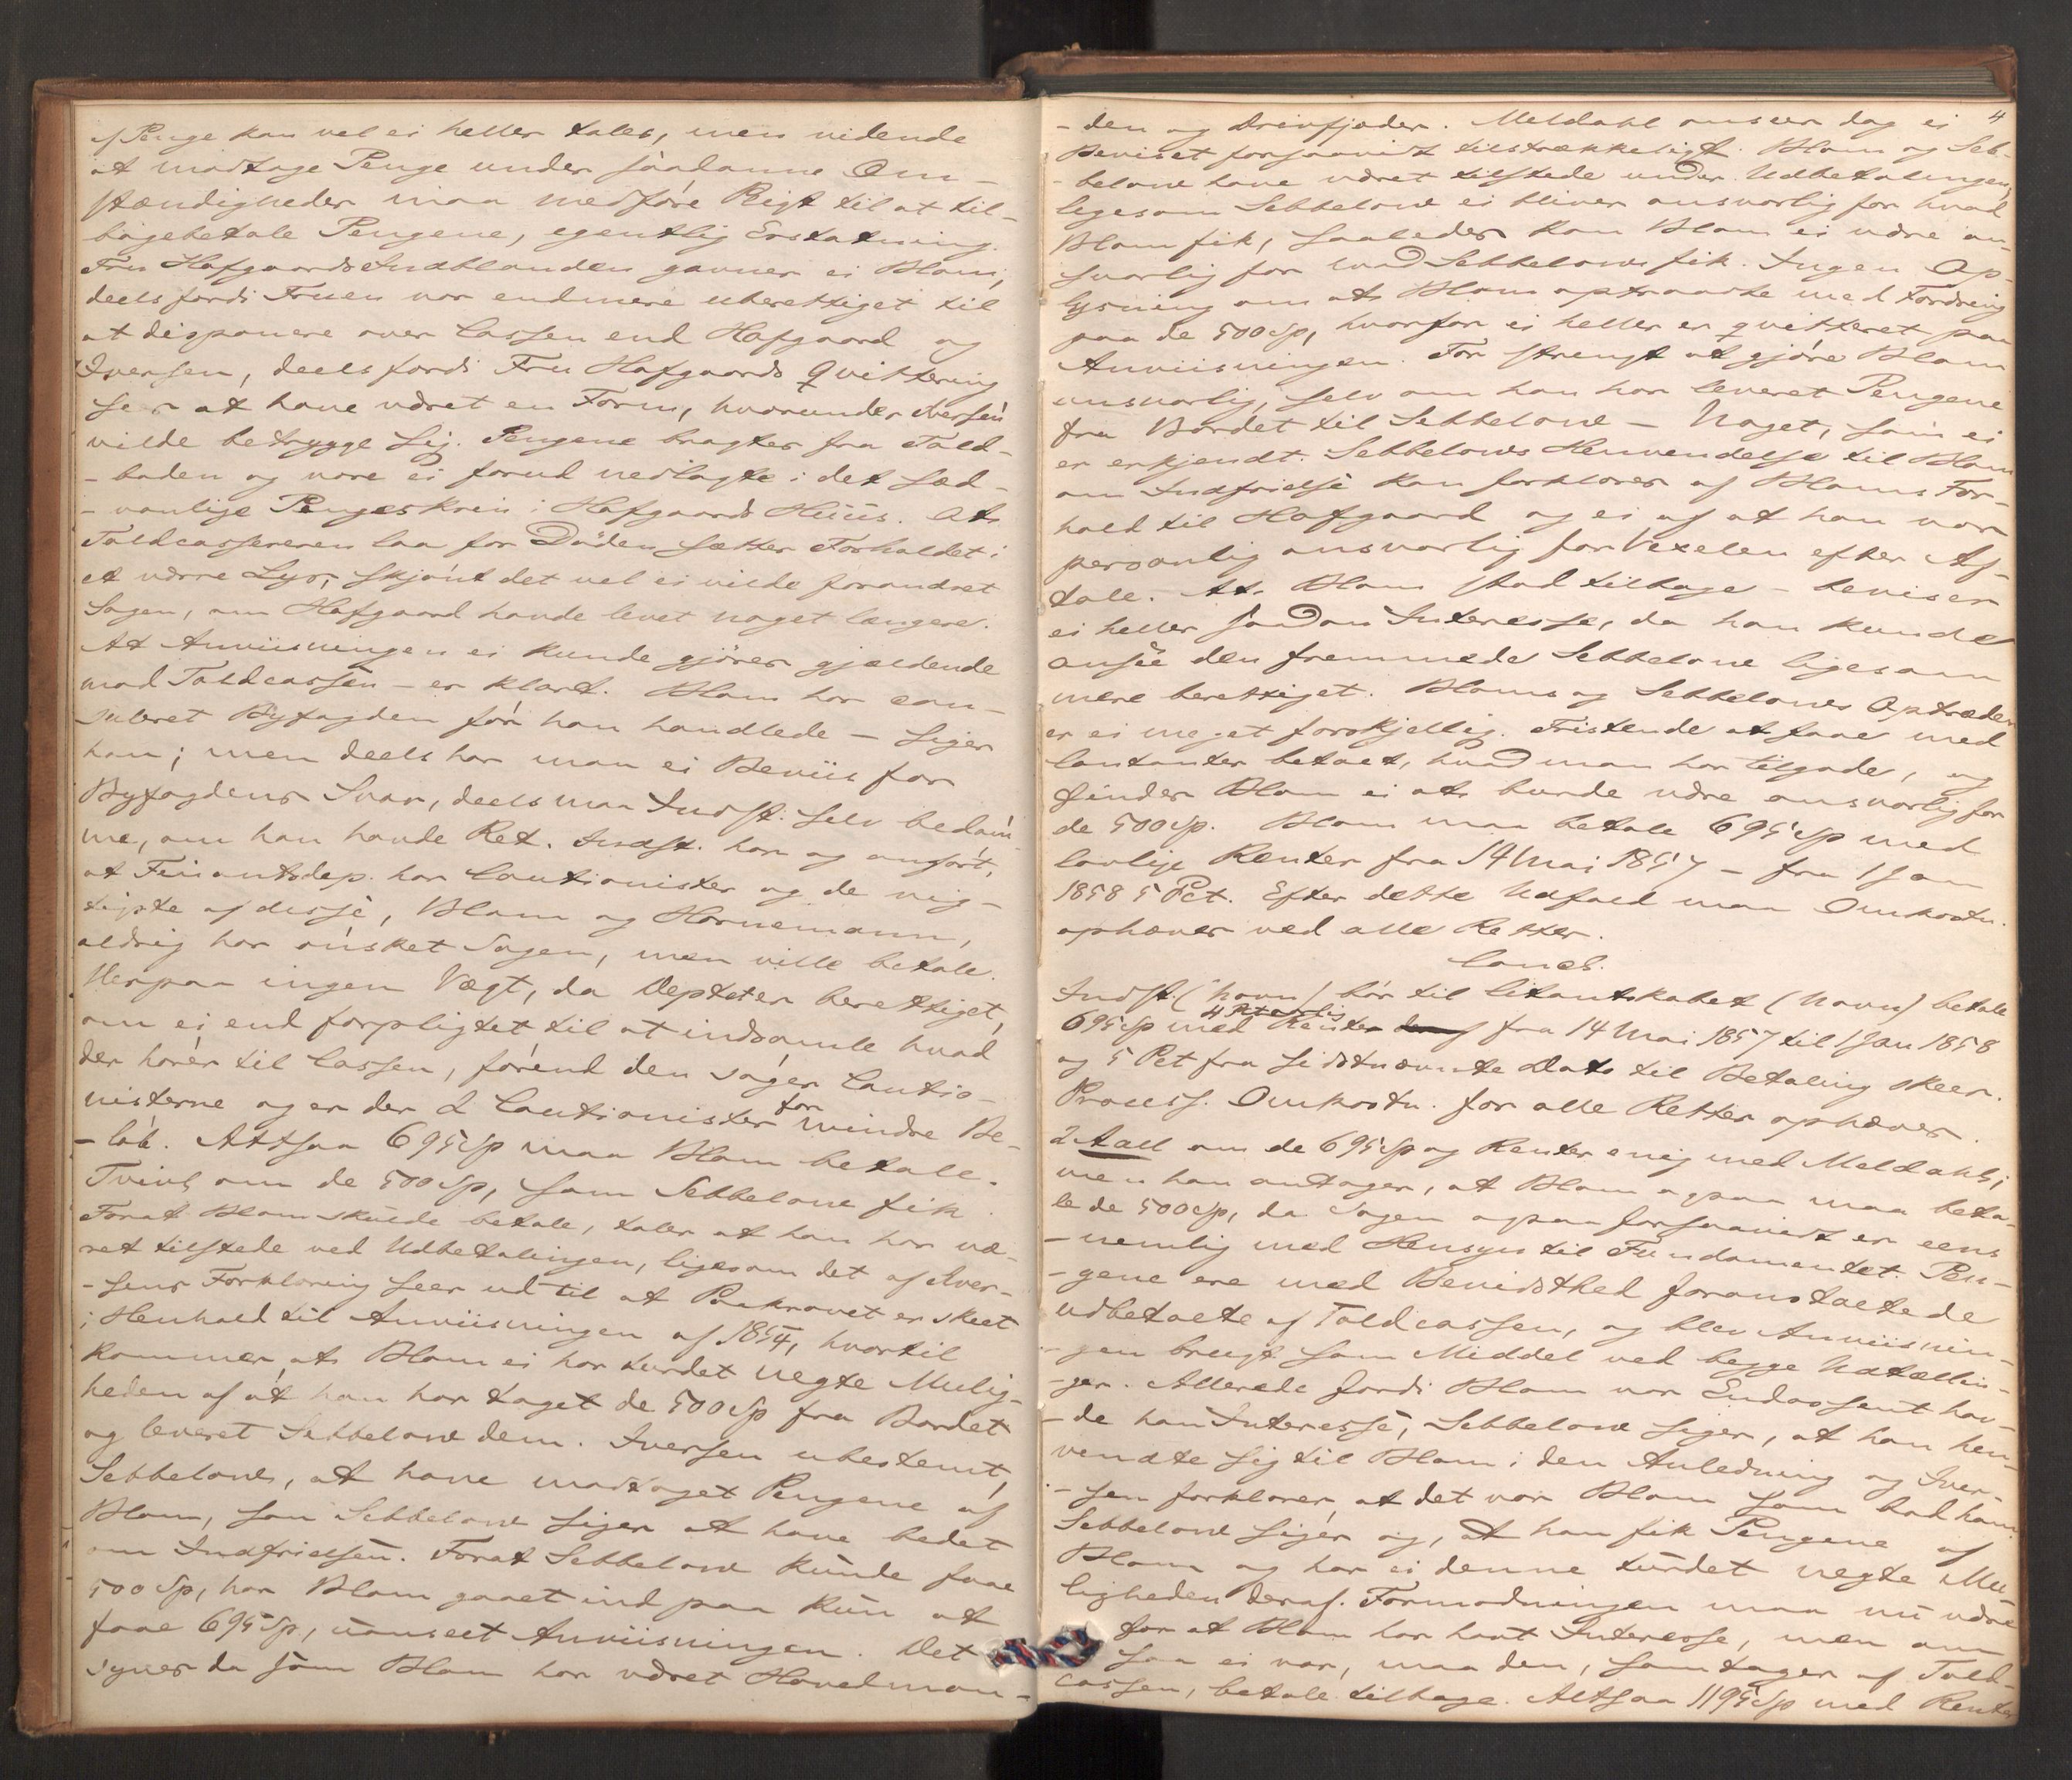 af Penge kan vel ei heller tales, men vidende
at modtage Penge under saadanne Om-
stændigheder maa medføre Pligt til at til-
bagebetale Pengene, egentlig Erstatning.
Fru Hafgaards Indblanden gavner ei Blom,
deels fordi Fruen var endmere uberettiget til
at disponere over Cassen end Hafgaard og
Iversen, deels fordi Fru Hafgaards Qvittering
ser at have været en Form, hvorunder Iversen
vilde betrygge sig. Pengene bragtes fra Told-
-boden og vare ei forud nedlagte i det sæd-
-vanlige Pengeskrin i Hafgaards Huus. At
Toldcassereren laa for Døden sætter Forholdet i
et værre Lys, skjønt det vel ei vilde forandret
Sagen, om Hafgaard havde levet noget længere.
At Anviisningen ei kunde gjøres gjældende
mod Toldcassen - er klart. Blom har con-
suleret Byfogden før han handlede - siger
han; men deels har man ei Beviis for
Byfogdens Svar, deels maa Indst. selv bedøm-
me, om han havde Ret. Indst. har og anført,
at Finantsdep. har Cautionister og de vig-
tigste af disse, Blom og Hornemann,
aldrig har ønsket Sagen, men ville betale.
Herpaa ingen Vægt, da Deptet er berettiget,
om ei end forpligtet til at indsamle hvad
der hører til Cassen, førend den søger Cautio-
nisterne og er der 2 Cautionister for mindre Be-
-løb. Altsaa 695 Sp maa Blom betale.
Tvivl om de 500 Sp, som Sebbelow fik.
For at Blom skulde betale, taler at han har væ-
ret tilstede ved Udbetalingen, ligesom det af Iver-
-sens Forklaring seer ud til at Paakravet er skeet
i Henhold til Anviisningen af 1854, hvortil
kommer, at Blom ei har turdet negte Mulig-
heden af at han har taget de 500 Sp fra Bordet
og leveret Sebbelow dem. Iversen ubestemt,
Sebbelows, at have modtaget Pengene af
Blom, som Sebbelow siger at have bedet
om Indfrielsen. For at Sebbelow kunde faae
500 Sp, har Blom gaaet ind paa kun at
faae 695 Sp, uanseet Anviisningen. Det
synes da som Blom har været Hovedman-
4
-den og Drivfjeder. Meldahl anseer dog ei
Beviset forsaavidt tilstrækkeligt. Blom og Seb-
-below have været tilstede under Udbetalingen,
ligesom Sebbelow ei bliver ansvarlig for hvad
Blom fik, saaledes kan Blom ei være an-
svarlig for hvad Sebbelow fik. Ingen Op-
lysning om at Blom optraadte med Fordring
paa de 500 Sp, hvorfor ei heller er qvitteret paa
Anviisningen. For strengt at gjøre Blom
ansvarlig, selv om han har leveret Pengene
fra Bordet til Sebbelow - Noget, som ei
er erkjendt. Sebbelows Henvendelse til Blom
om Indfrielse kan forklares af Bloms For-
hold til Hafgaard og ei af at han var
personlig ansvarlig for Vexelen efter Af-
tale. At Blom stod tilbage - beviser
ei heller saadan Interesse, da han kunde
ansee den fremmede Sebbelow ligesom
mere berettiget. Bloms og Sebbelows Optræden
er ei meget forskjellig. Fristende at faae med
Contanter betalt, hvad man har tilgode, og
finder Blom ei at burde være ansvarlig for
de 500 Sp. Blom maa betale 695 Sp med
lovlige Renter fra 14 Mai 1857 - fra 1 Jan
1858 5 Pct. Efter dette Udfald maa Omkostn.
ophæves ved alle Retter.
Concl.
Indst. (Navn) bør til Citantskabet (Navn) betale
695 Sp med 4 Pct aarlig Renter fra 14 Mai 1857 til 1 Jan 1858
og 5 Pct fra sidstnævnte Dato til Betaling skeer.
Process. Omkostn. for alle Retter ophæves.
2 Aall om de 695 Sp og Renter enig med Meldahl;
men han antager, at Blom ogsaa maa beta-
le de 500 Sp, da Sagen ogsaa forsaavidt er eens
-nemlig med Hensyn til Fundamentet. Pen-
-gene ere med Bevidsthed foranstaltede
udbetalte af Toldcassen, og blev Anviisnin-
-gen brugt som Middel ved begge Udtællin-
-ger. Allerede fordi Blom var Endossent hav-
-de han Interesse, Sebbelow siger, at han hen-
vendte sig til Blom i den Anledning og Iver-
-sen forklarer, at det var Blom som bad ham.
Sebbelow siger og, at han fik Pengene af
Blom og har ei denne turdet negte Mu-
ligheden deraf. Formodningen maa nu være
for at Blom har havt Interesse, men om
saa ei var, maa den, som tager af Told-
cassen, betale tilbage. Altsaa 1195 Sp med Renter